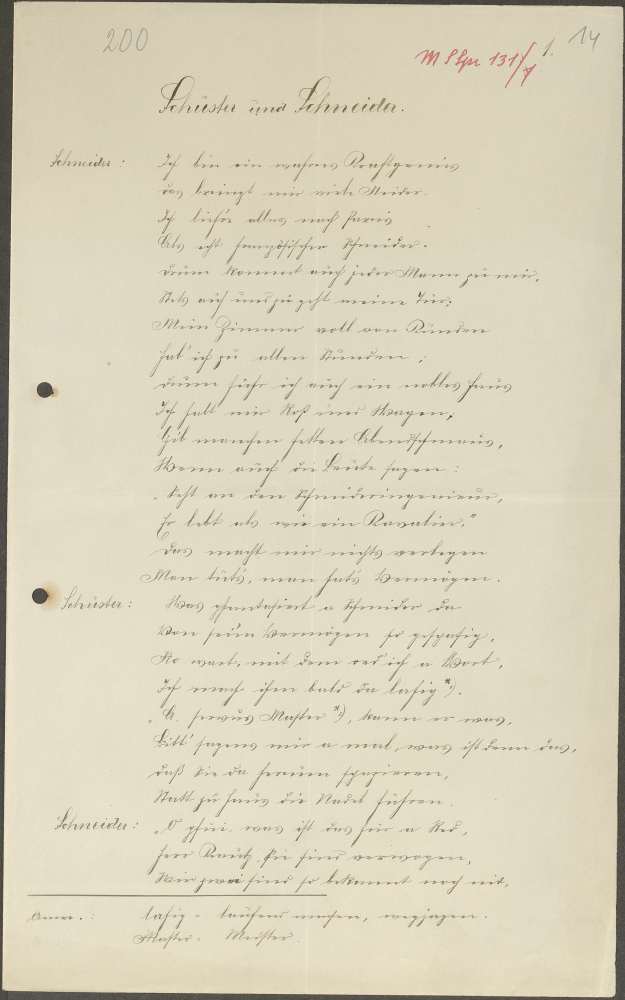 200
M S Spr 131/1 1. 14
Schuster und Schneider.
Schneider: Ich bin ein wahres Kraftgenie
das bringt mir viele Neider.
Ich liefre alles nach Paris
Als echt französischer Schneider.
Drum kommt auch jeder Mann zu mir,
Stets auf und zu geht meine Tür;
Mein Zimmer voll von Kunden
hab' ich zu allen Stunden;
drum führ ich auch ein nobles Haus
Ich halt mir Roß und Wagen,
Gib manchen fetten Abendschmaus,
Wenn auch die Leute sagen:
„Seht an den Schneideringenieur,
Er lebt als wie ein Kavalier."
Das macht mir nichts verlegen
Man tut's, man hat's Vermögen.
Schuster: Was phantasiert a Schneider da
Von sein Vermögen so gspaßig,
No wart, mit dem red ich a Wort,
Ich mach ihm bald da lasig*).
„A, servus Master*), kann er was,
Bitt' sagens mir a mal, was ist denn das,
daß Sie da herum spazieren,
Statt zu Haus die Nadel führen.
Schneider: „O pfui, was ist das für a Red,
Herr Kautz, Sie sind verwogen,
Wir zwei sind so bekannt noch nit,
Anm.: lasig = laufend machen, wegjagen.
Master = Meister.